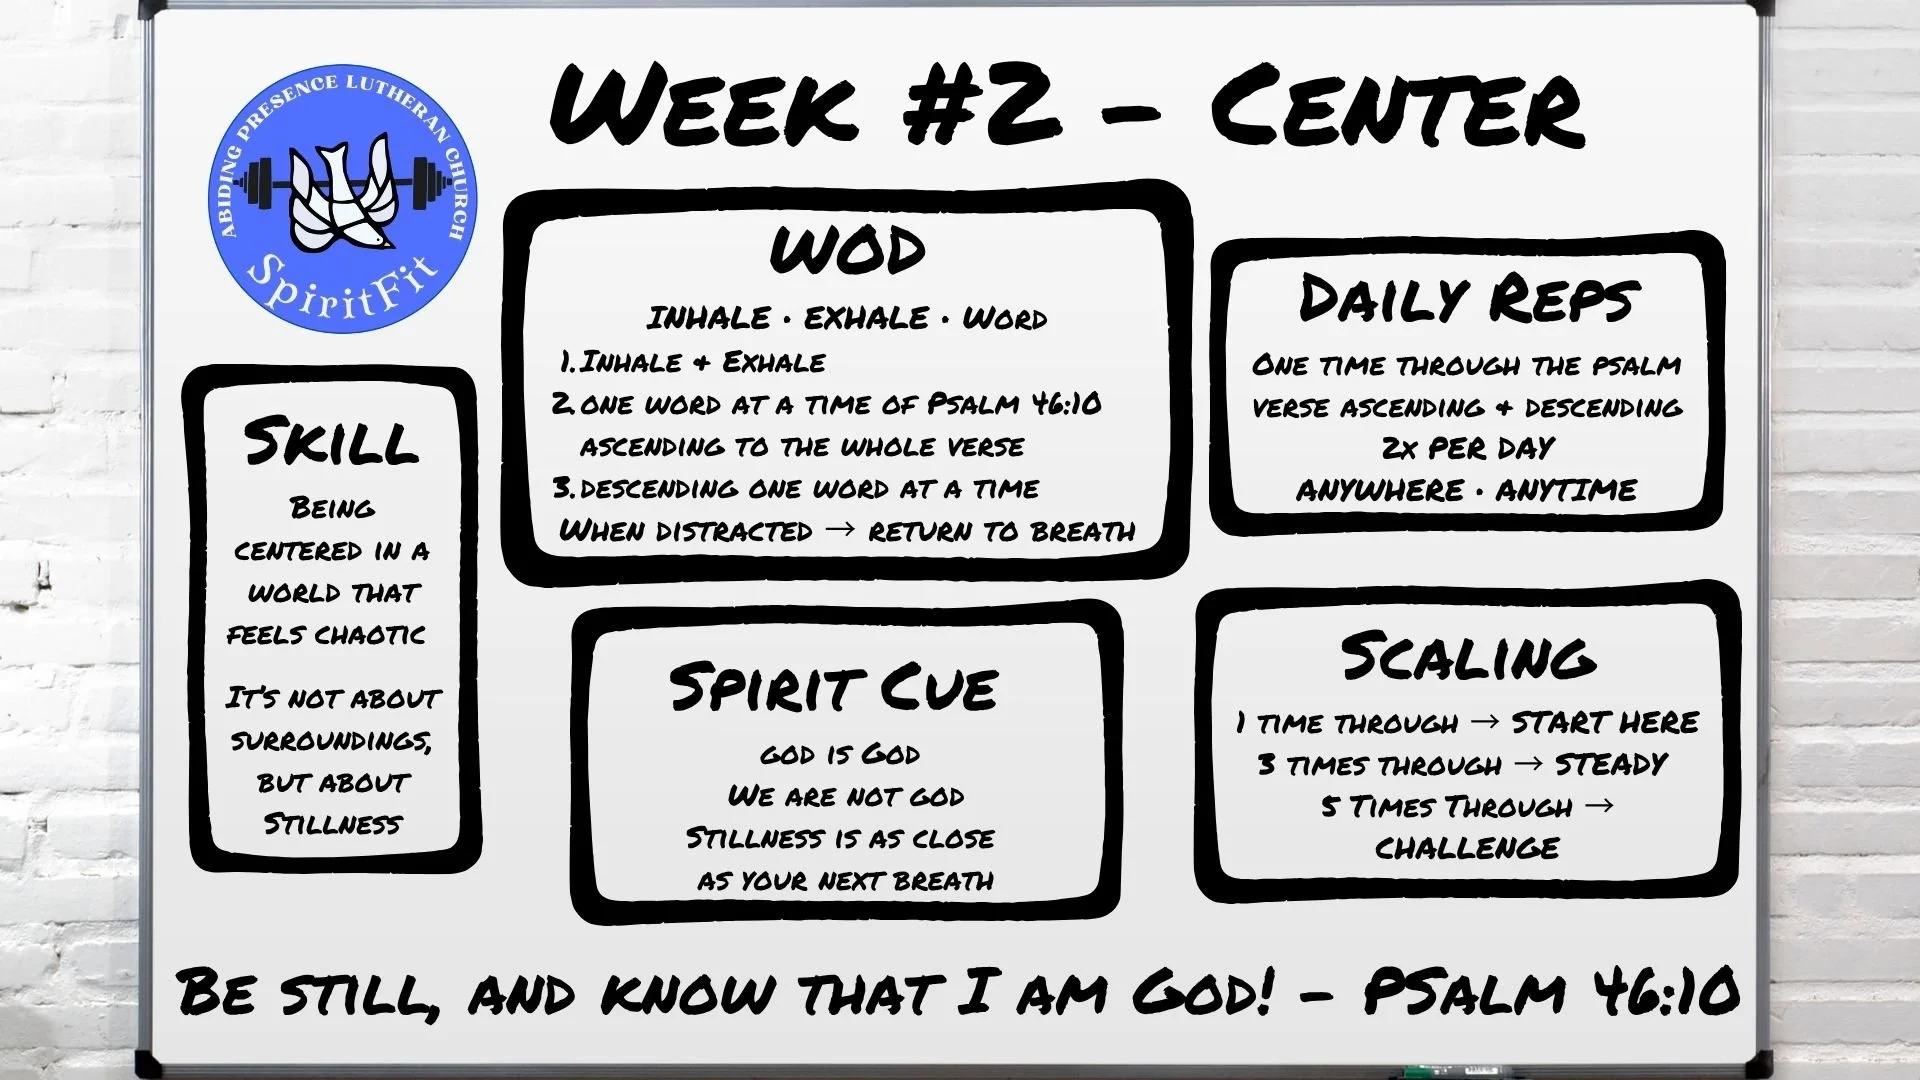 Week #2 - Center
ABIDING PRESENCE LUTHERAN CHURCH
SpiritFit
Skill
Being
centered in a
world that
feels chaotic
It's not about
surroundings,
but about
Stillness
WOD
INHALE · EXHALE · Word
1. Inhale & Exhale
2. one word at a time of Psalm 46:10
ascending to the whole verse
3. descending one word at a time
When distracted → return to breath
Spirit Cue
god is God
We are not god
Stillness is as close
as your next breath
Daily Reps
One time through the psalm
verse ascending & descending
2x per day
ANYWHERE · ANYTIME
Scaling
1 time through → START HERE
3 times through → STEADY
5 Times Through →
CHALLENGE
Be still, and know that I am God! - PSalm 46:10